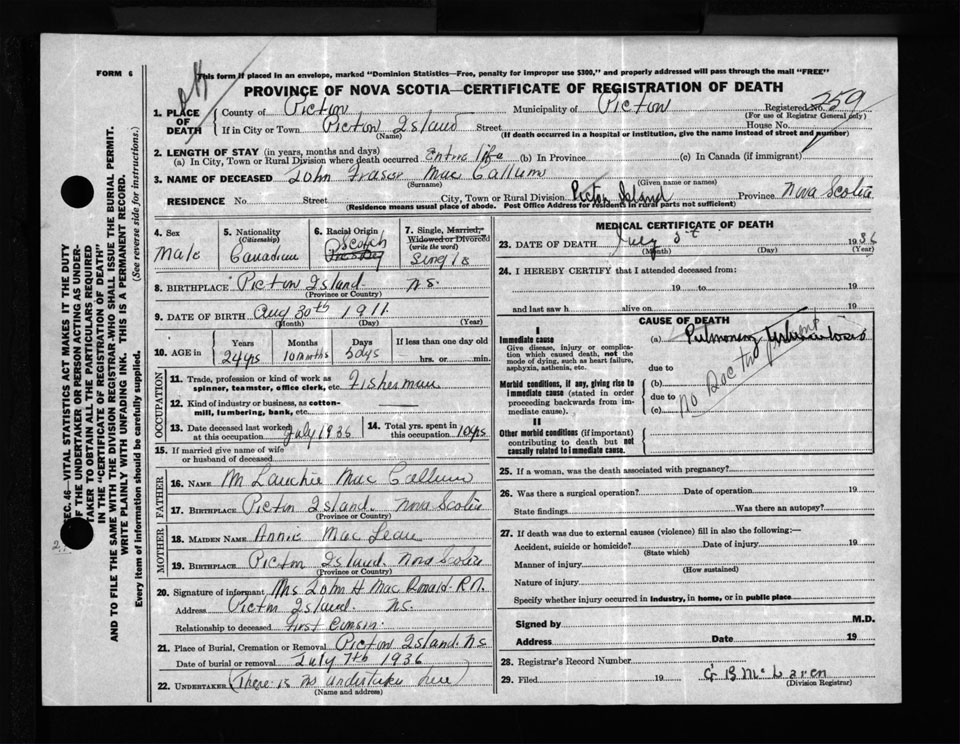 FORM 6
This form if placed in an envelope, marked "Dominion Statistics—Free, penalty for improper use $300," and properly addressed will pass through the mail "FREE"
PROVINCE OF NOVA SCOTIA—CERTIFICATE OF REGISTRATION OF DEATH
1. PLACE OF DEATH County of Pictou Municipality of Pictou Registered No. 259
(For use of Registrar General only)
If in City or Town Pictou Island Street House No.
(Name) (If death occurred in a hospital or institution, give the name instead of street and number)
2. LENGTH OF STAY (in years, months and days)
(a) In City, Town or Rural Division where death occurred Entire life (b) In Province (c) In Canada (if immigrant)
3. NAME OF DECEASED John Fraser Mac Callum
(Surname) (Given name or names)
RESIDENCE No Street City, Town or Rural Division Pictou Island Province Nova Scotia
(Residence means usual place of abode. Post Office Address for residents in rural parts not sufficient)
4. Sex 5. Nationality (Citizenship) 6. Racial Origin 7. Single, Married, Widowed or Divorced (write the word)
Male Canadian Scotch Single
8. BIRTHPLACE Pictou Island. N.S.
(Province or Country)
9. DATE OF BIRTH Aug 30th 1911
(Month) (Day) (Year)
10. AGE in Years Months Days If less than one day old
24 yrs 10 months 5 days hrs. or min.
OCCUPATION
11. Trade, profession or kind of work as spinner, teamster, office clerk, etc. Fisherman
12. Kind of industry or business, as cotton-mill, lumbering, bank, etc.
13. Date deceased last worked at this occupation July 1935 14. Total yrs. spent in this occupation 10 yrs
15. If married give name of wife or husband of deceased
FATHER
16. NAME M Lauchie Mac Callum
17. BIRTHPLACE Pictou Island. Nova Scotia
(Province or Country)
MOTHER
18. MAIDEN NAME Annie Mac Lean
19. BIRTHPLACE Pictou Island. Nova Scotia
(Province or Country)
20. Signature of informant Mrs John H Mac Donald. R.N.
Address Pictou Island. N.S.
Relationship to deceased First Cousin.
21. Place of Burial, Cremation or Removal Pictou Island. N.S
Date of burial or removal July 7th 1936
22. UNDERTAKER (There is no undertaker here)
(Name and address)
MEDICAL CERTIFICATE OF DEATH
23. DATE OF DEATH July 5th 1936
(Month) (Day) (Year)
24. I HEREBY CERTIFY that I attended deceased from:
19 to 19
and last saw h alive on 19
CAUSE OF DEATH
I
Immediate cause (a) Pulmonary Tuberculosis
Give disease, injury or complication which caused death, not the mode of dying, such as heart failure, asphyxia, asthenia, etc.
due to
Morbid conditions, if any, giving rise to immediate cause (stated in order proceeding backwards from immediate cause).
(b)
due to
(c)
No Doctor
II
Other morbid conditions (if important) contributing to death but not causally related to immediate cause.
25. If a woman, was the death associated with pregnancy?
26. Was there a surgical operation? Date of operation 19
State findings Was there an autopsy?
27. If death was due to external causes (violence) fill in also the following:—
Accident, suicide or homicide? Date of injury 19
(State which)
Manner of injury
(How sustained)
Nature of injury
Specify whether injury occurred in industry, in home, or in public place
Signed by M.D.
Address Date 19
28. Registrar's Record Number
29. Filed 19 G B McLaren
(Division Registrar)
SEC. 46—VITAL STATISTICS ACT MAKES IT THE DUTY
OF THE UNDERTAKER OR PERSON ACTING AS UNDER-
TAKER TO OBTAIN ALL THE PARTICULARS REQUIRED
IN THE "CERTIFICATE OF REGISTRATION OF DEATH"
AND TO FILE THE SAME WITH THE DIVISION REGISTRAR WHO SHALL ISSUE THE BURIAL PERMIT.
WRITE PLAINLY WITH UNFADING INK. THIS IS A PERMANENT RECORD.
Every item of information should be carefully supplied. (See reverse side for instructions.)